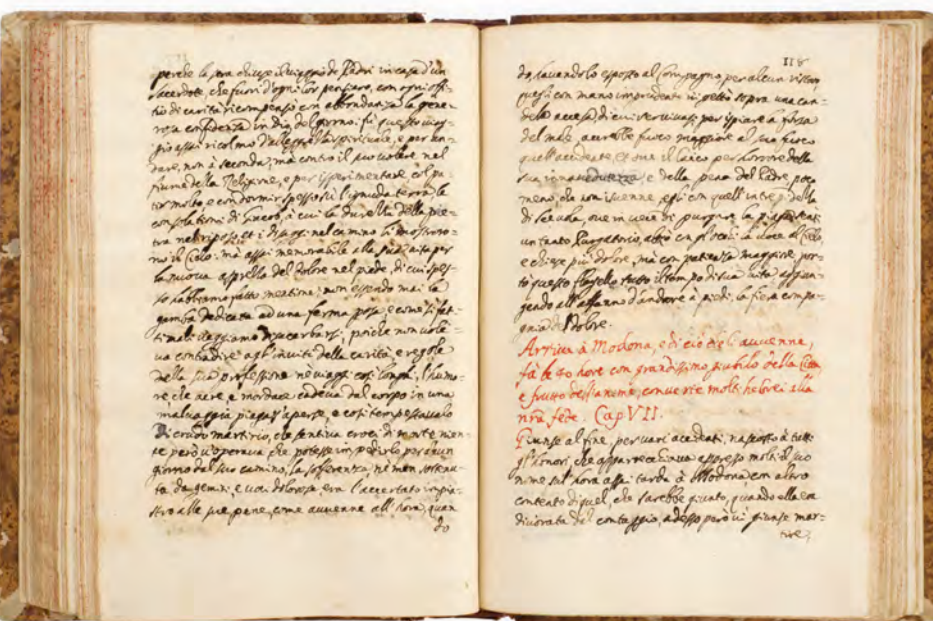 perche la sera chiuse il viaggio de Padri in casa d'un
sacerdote, che fuori d'ogni lor pensiero, con ogni offi=
tio di carità ricompensò con abbondanza la gene=
rosa confidenza in dio del giorno: fù questo viag=
gio assai ricolmo d'allegrezza spirituale, e per an=
dare, non à seconda, mà contro il suo volere nel
fiume della Religione, e per isperimentare, col pa=
tir molto, e con dormir spesso sù l'ignuda terra le
consolationi di Giacob, à cui la durezza della pie=
tra nel riposo, et i disaggi nel camino li mostrono=
no il Cielo: mà assai memorabile alla
la nuova del dolore nel piede, di cui spes=
so habbiamo fatto mentione; non essendo mai la
gamba dedicata ad una ferma posa, e come si fat=
ti mali veggiamo esacerbarsi, poiche non vole=
va contradire agl'inviti della carità, e regole
della sua professione ne viaggi così longhi, l'humo=
re che acre, e mordace cadeva dal corpo in una
malvaggia piaga s'aperse, e così tempestavalo
di crudo martirio, che sentiva croci di morte, nien=
te però v'operava che potesse impedirlo per alcun
giorno dal suo camino, la sofferenza, ne men sostenu=
ta da gemiti, e voci dolorose, era l'accertato impia=
stro alle sue pene, come avvenne all'hora, quan
do
118
do, havendolo esposto al Compagno per alcun ristoro,
questi con mano imprudente vi gettò sopra una can=
dela accesa, di cui servivasi per spiare la forza
del male, accrebbe fuoco maggiore al suo fuoco
quell'accidente, et ove il laico per horrore della
sua innavedutezza, e della pena del Padre, poco
meno, che non isvenne, egli con quell'intrepidezza
di Scevola, ove in vece di purgare la piaga
un tanto Purgatorio, alzò con gl'occhi la voce al Cielo,
e chiese più dolore, mà con patienza maggiore, por=
tò questo flagello tutto il tempo di sua vita aggiun=
gendo all'affanno d'andare à piedi, la fiera compa=
gnia del dolore.
Arriva à Modona, e di ciò che li avvenne,
fà le 40 hore con grandissimo giubilo della Città,
e frutto dell'anime, converte molti hebrei alla
nrã fede. Cap VII.
Giunse al fine, per vari accidenti, nascosto à tutti
gl'honori, che apparecchiava espresso molti il suo
nome sul'hora assai tarda à Modona con altro
contento di quel, che sarebbe giunto, quando ella era
divorata dal contaggio, adesso però vi giunse mar=
tire,